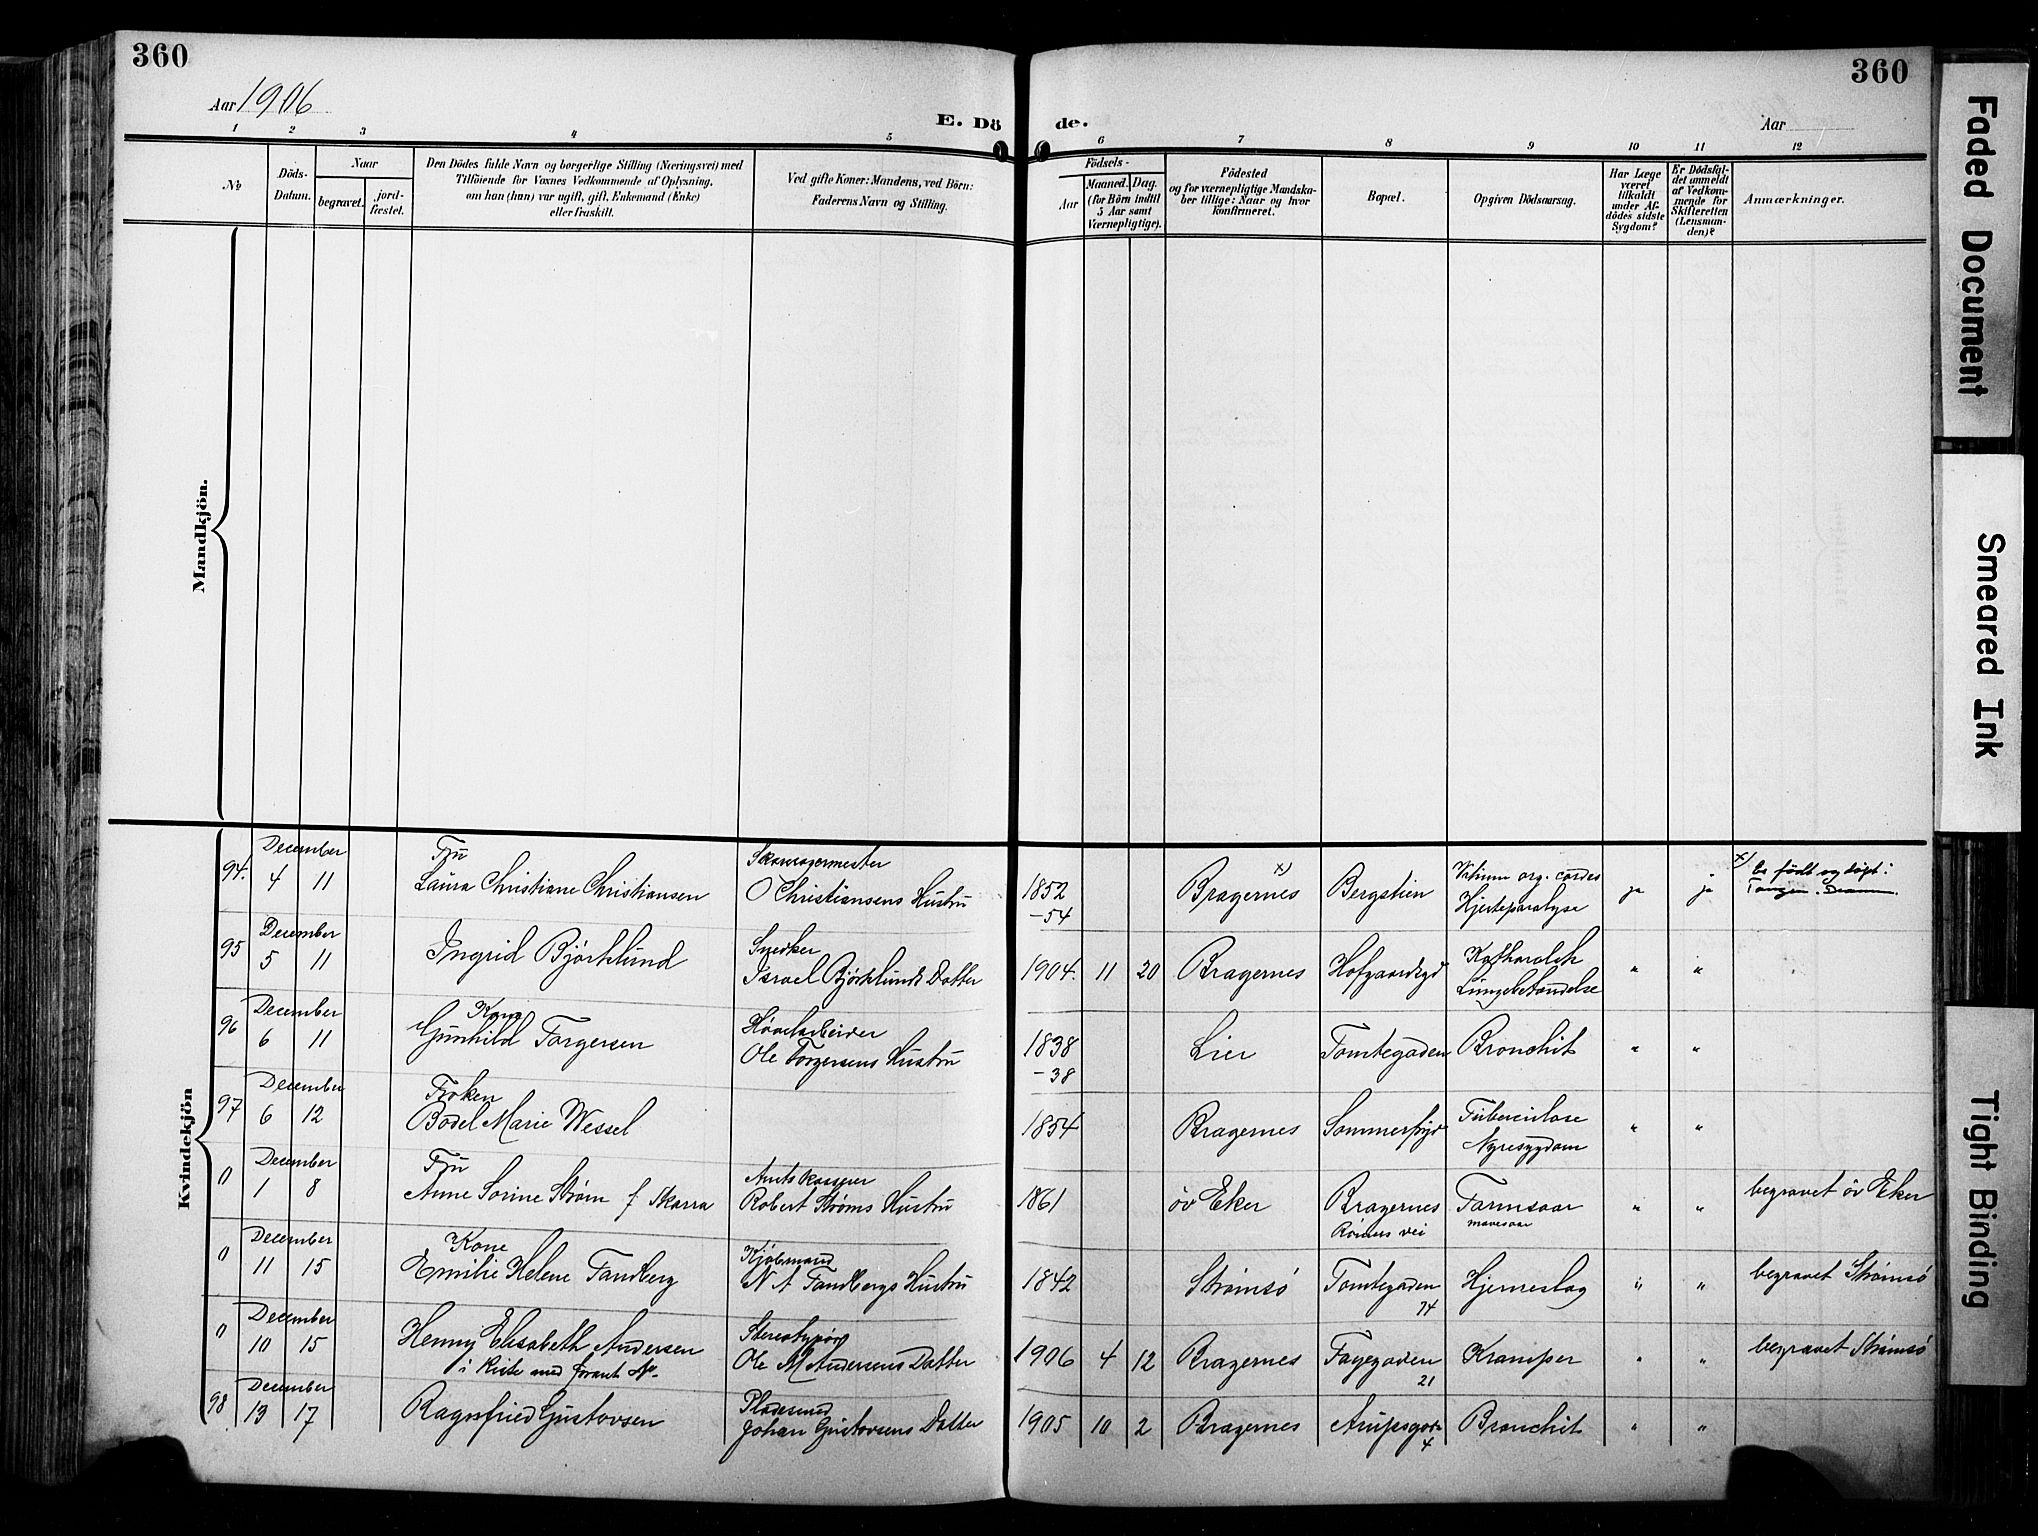 360
360
Aar 1906
E. Dö
de.
Aar
1 2 3 4 5 6 7 8 9 10 11 12
No
Döds-Datum.
Naar
begravet.
jord-fæstet.
Den Dödes fulde Navn og borgerlige Stilling (Næringsvei) med
Tilföiende for Voxnes Vedkommende af Oplysning.
om han (hun) var ugift, gift, Enkemand (Enke)
eller fraskilt.
Ved gifte Koner: Mandens, ved Börn:
Faderens Navn og Stilling.
Födsels-
Aar
Maaned. Dag.
(for Börn indtil
5 Aar samt
Værnepligtige).
Födested
og for værnepligtige Mandska-
ber tillige: Naar og hvor
konfirmeret.
Bopæl.
Opgiven Dödsaarsag.
Har Læge
været
tilkaldt
under Af-
dödes sidste
Sygdom?
Er Dödsfal-
det anmeldt
af Vedkom-
mende for
Skifteretten
(Lensman-
den)?
Anmærkninger.
Mandkjön.
Kvindekjön
94. December 4 11 Fru Laura Christiane Christiansen
O Christiansens Hustru 1852 -54 Bragernes x) Bergstien Vitium org. cordis Hjerteparalyse ja ja x) Er født og døbt: Tangen. Dramm.
95 December 5 11 Ingrid Bjørklund Snedker Israel Bjørklunds Datter 1904. 11 20 Bragernes Hofgaardsgd Katharalsk Lungebetændelse " "
96 December 6 11 Kone Gunhild Torgersen Høvlarbeider Ole Torgersens Hustru 1838 -38 Lier Tomtegaden Bronchit " "
97 December 6 12 Frøken Bodel Marie Wessel 1854 Bragernes Sommerfryd Tuberculose Nyresygdom " "
0 December 1 8 Fru Anne Sorine Strøm f. Skarra Amtskasserer Robert Strøms Hustru 1861 öv Eker Bragernes vei Tarmsaar mavesaar " " begravet öv Eker
0 December 11 15 Kone Emilie Helene Tandberg Kjøbmand N A Tandbergs Hustru 1842 Strømsö Tomtegaden 74 Hjerneslag " " begravet Strømsö
0 December 10 15 Henny Elisabeth Andersen i Kiste med forant No. Stereotypør Ole M Andersens Datter 1906 4 12 Bragernes Fayegaden 21 Kramper " " begravet Strømsö
98 December 13 17 Ragnfried Gustavsen Pladesmed Johan Gustavsens Datter 1905 10 2 Bragernes Arupsgate 4 Bronchit " "
Faded Document
Smeared Ink
Tight Binding